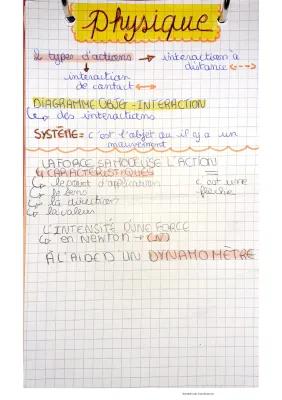 Physique
2 types d'actions → interaction à
distance
interaction
de contact
DIAGRAMME OBJET - INTERACTION
des interactions
SYSTÈME = c'est l'objet où il y a un
mouvement
LA FORCE SA MODÉLISE L'ACTION
4 CARACTÉRISTIQUES
le point d'application
c'est une
flèche
le sens
la direction
la valeur
L'INTENSITÉ D'UNE FORCE
en newton → (N)
À L'AIDE D UN DYNAMOMÈTRE